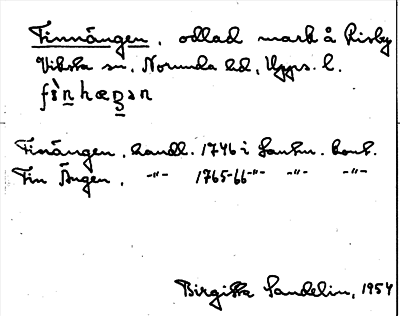 Finnängen, odlad mark å Risby
Viksta sn, Norunda hd, Upps. l.
Finängen, handl. 1746 i Lantm. kont.
Fin Ängen, -"- 1765-66 -"- -"- -"-
Birgitta Sandelin, 1954